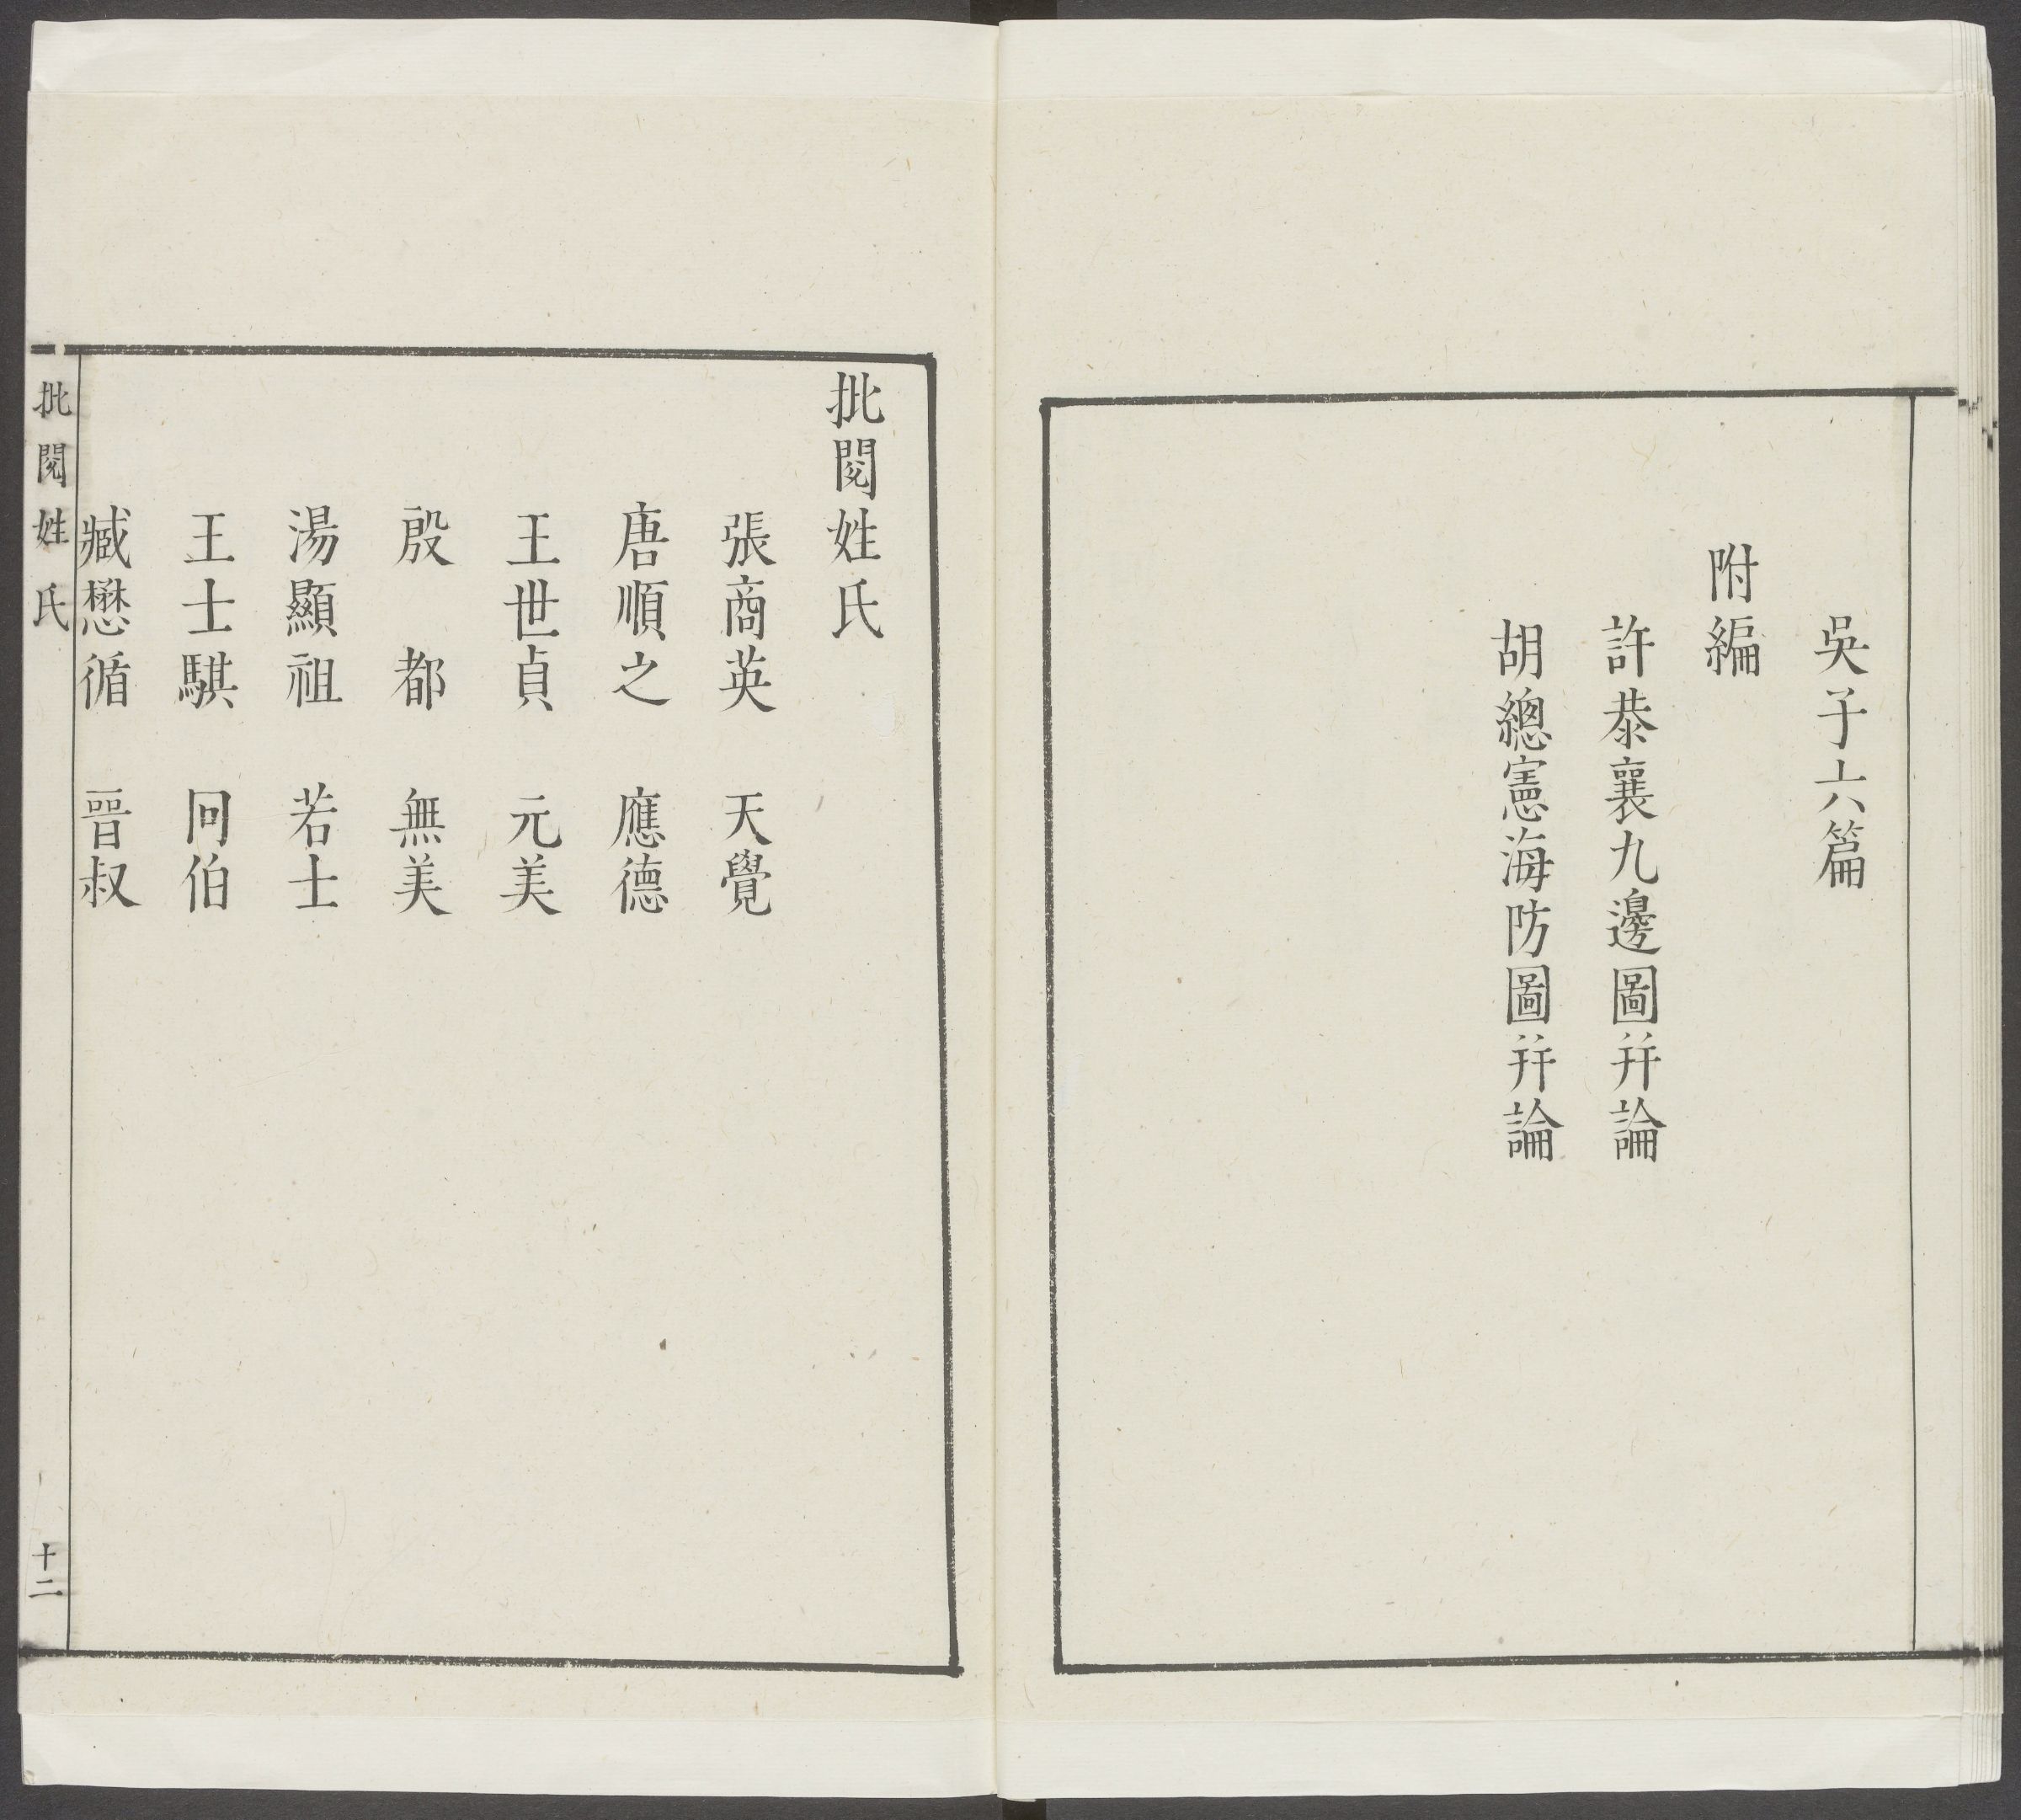 吳子六篇
附編
許恭襄九邊圖并論
胡總憲海防圖并論
批閱姓氏
張商英　天覺
唐順之　應德
王世貞　元美
殷　都　無美
湯顯祖　若士
王士騏　冏伯
臧懋循　晉叔
批閱姓氏
十二